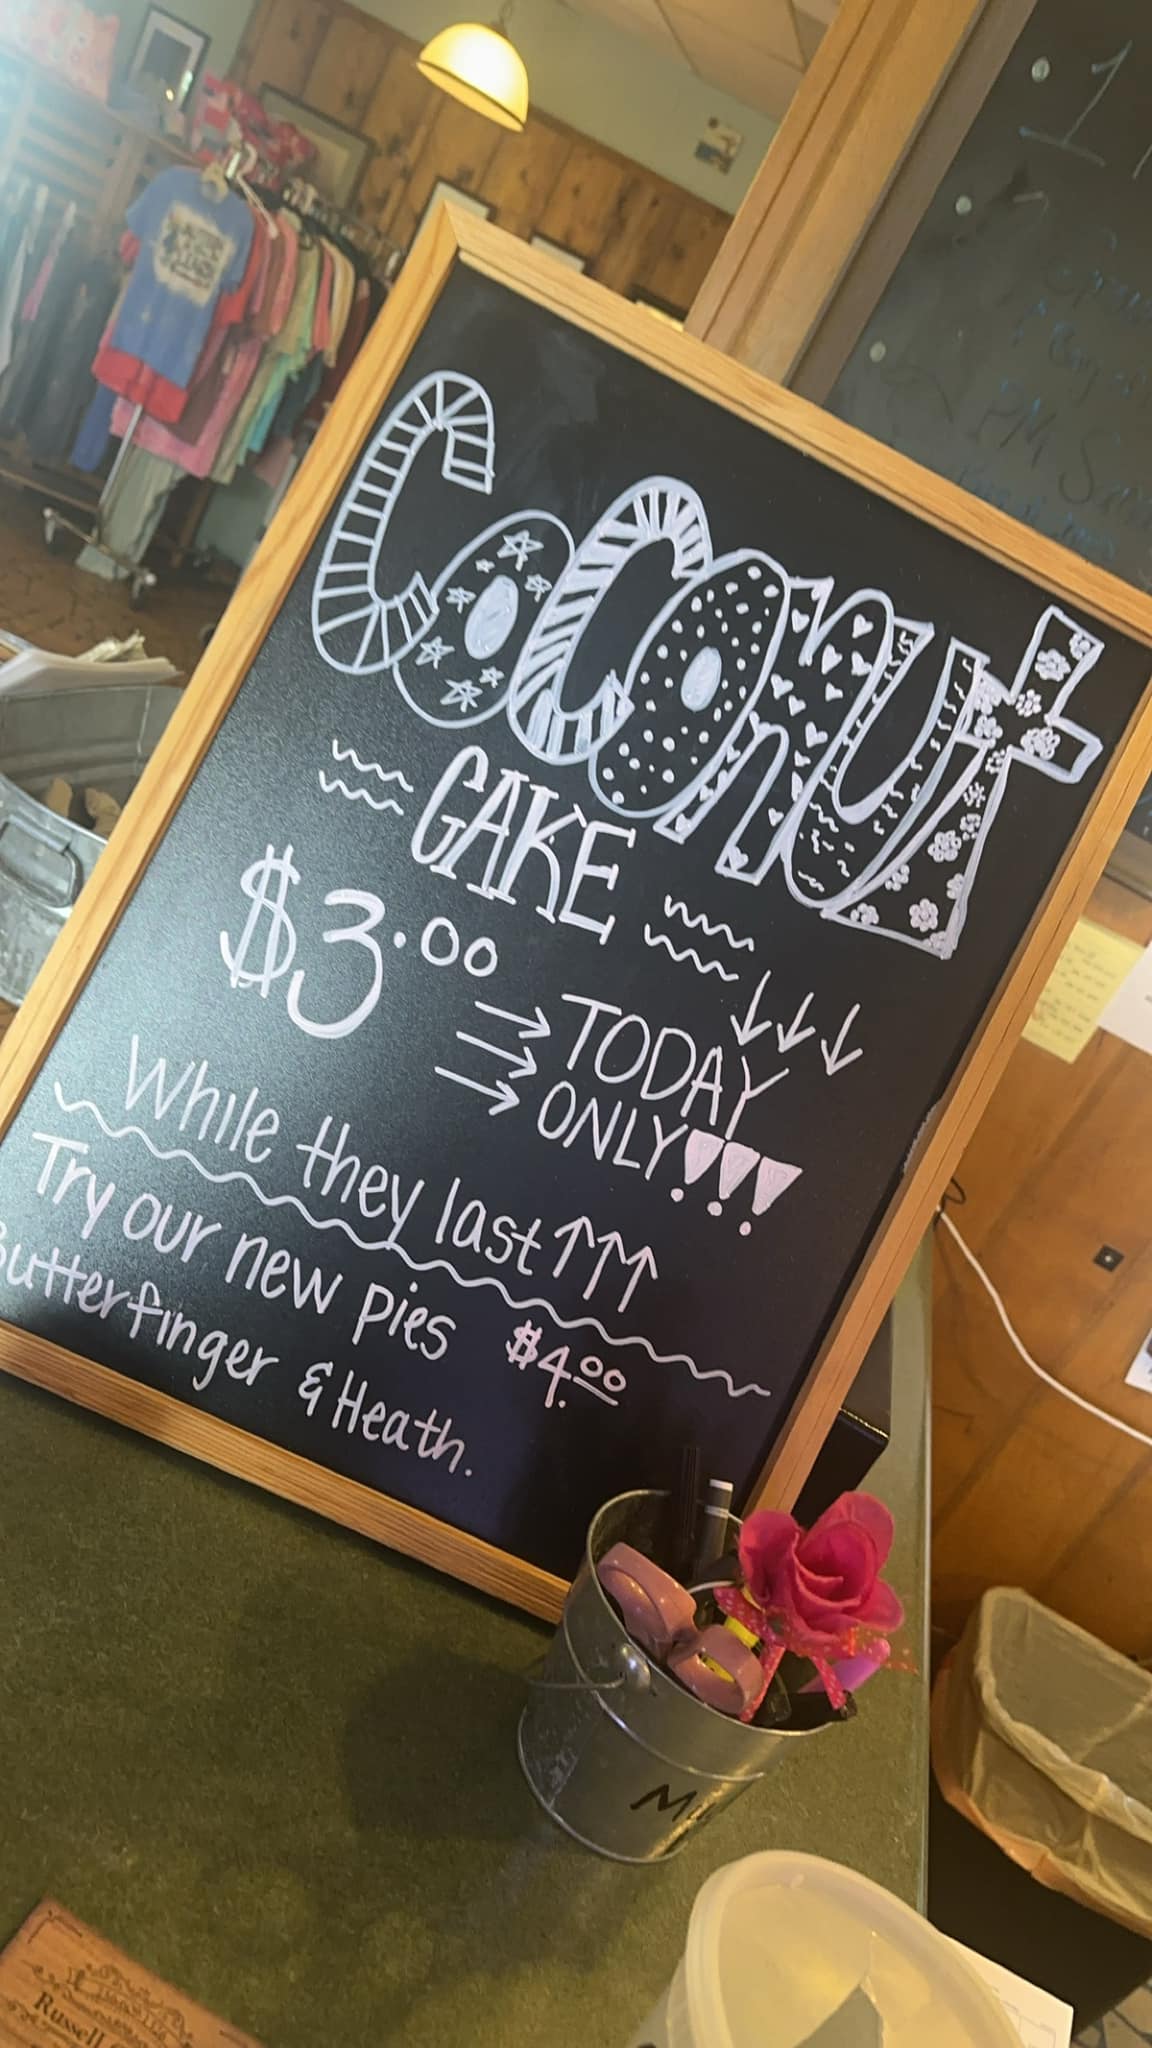 Coconut
CAKE
$3.00
TODAY
ONLY!!!
While they last
Try our new pies $4.00
Butterfinger & Heath.
Russell